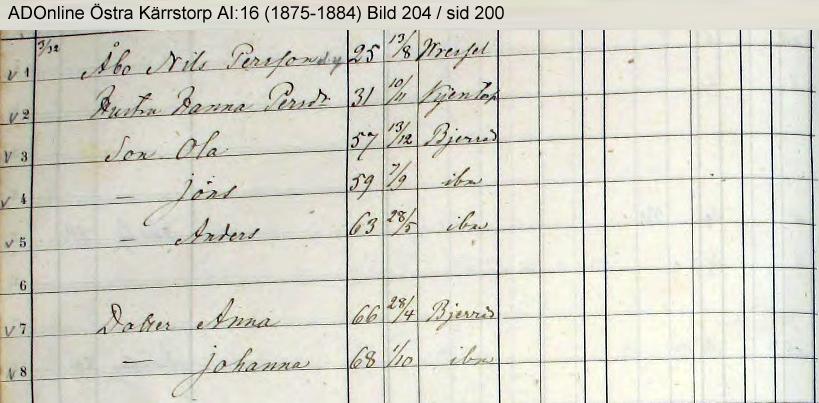 ADOnline Östra Kärrstorp AI:16 (1875-1884) Bild 204 / sid 200
v 1 3/32 Åbo Nils Persson 25 13/8 
v 2 Hustru Hanna Persdr 31 10/11
v 3 Son Ola 57 13/12 Bjerröd
v 4 — Jöns 59 7/9 ibm
v 5 — Anders 63 28/5 ibm
6
v 7 Dotter Anna 66 28/4 Bjerröd
v 8 — Johanna 68 1/10 ibm